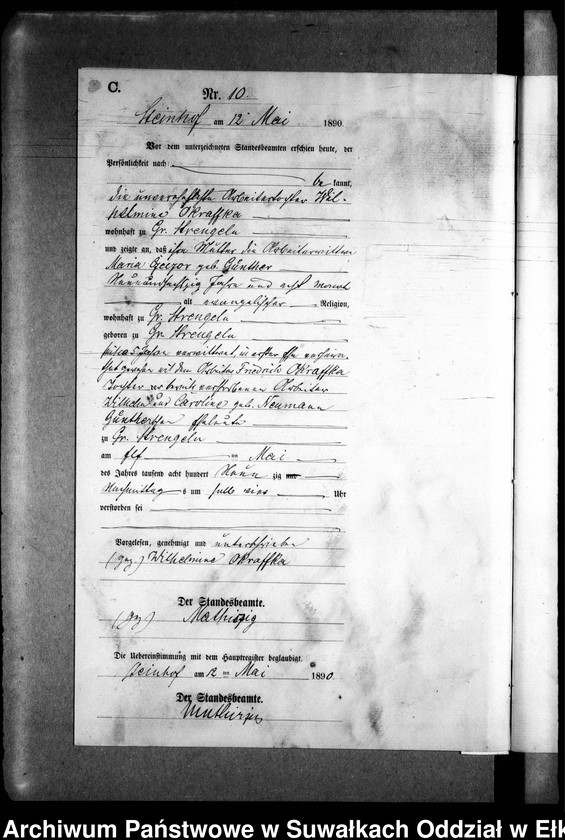 C.
Nr. 10.
Steinhof am 12 Mai 1890.
Vor dem unterzeichneten Standesbeamten erschien heute, der
Persönlichkeit nach
be kannt,
die unverehelichte Arbeitertochter Wil-
helmine Okraffka
wohnhaft zu Gr. Strengeln
und zeigte an, daß ihre Mutter die Arbeiterwittwe
Maria geb. Günther
Neunundsechzig Jahre und acht Monat
alt evangelischer Religion,
wohnhaft zu Gr. Strengeln
geboren zu Gr. Strengeln
Jahre verwittwet, in erster Ehe verheira-
thet gewesen mit dem Arbeiter Friedrich Okraffka
Tochter der bereits verstorbenen Arbeiter
Wilhelm und Caroline geb. Neumann
Günther'schen Eheleute
zu Gr. Strengeln
am elf ten Mai
des Jahres tausend acht hundert Neun zig
Nachmittag s um halb vier Uhr
verstorben sei
Vorgelesen, genehmigt und unterschrieben
(gez.) Wilhelmine Okraffka
Der Standesbeamte.
(gez)
Die Uebereinstimmung mit dem Hauptregister beglaubigt.
Steinhof am 12 ten Mai 1890.
Der Standesbeamte.
Archiwum Państwowe w Suwałkach Oddział w Ełk